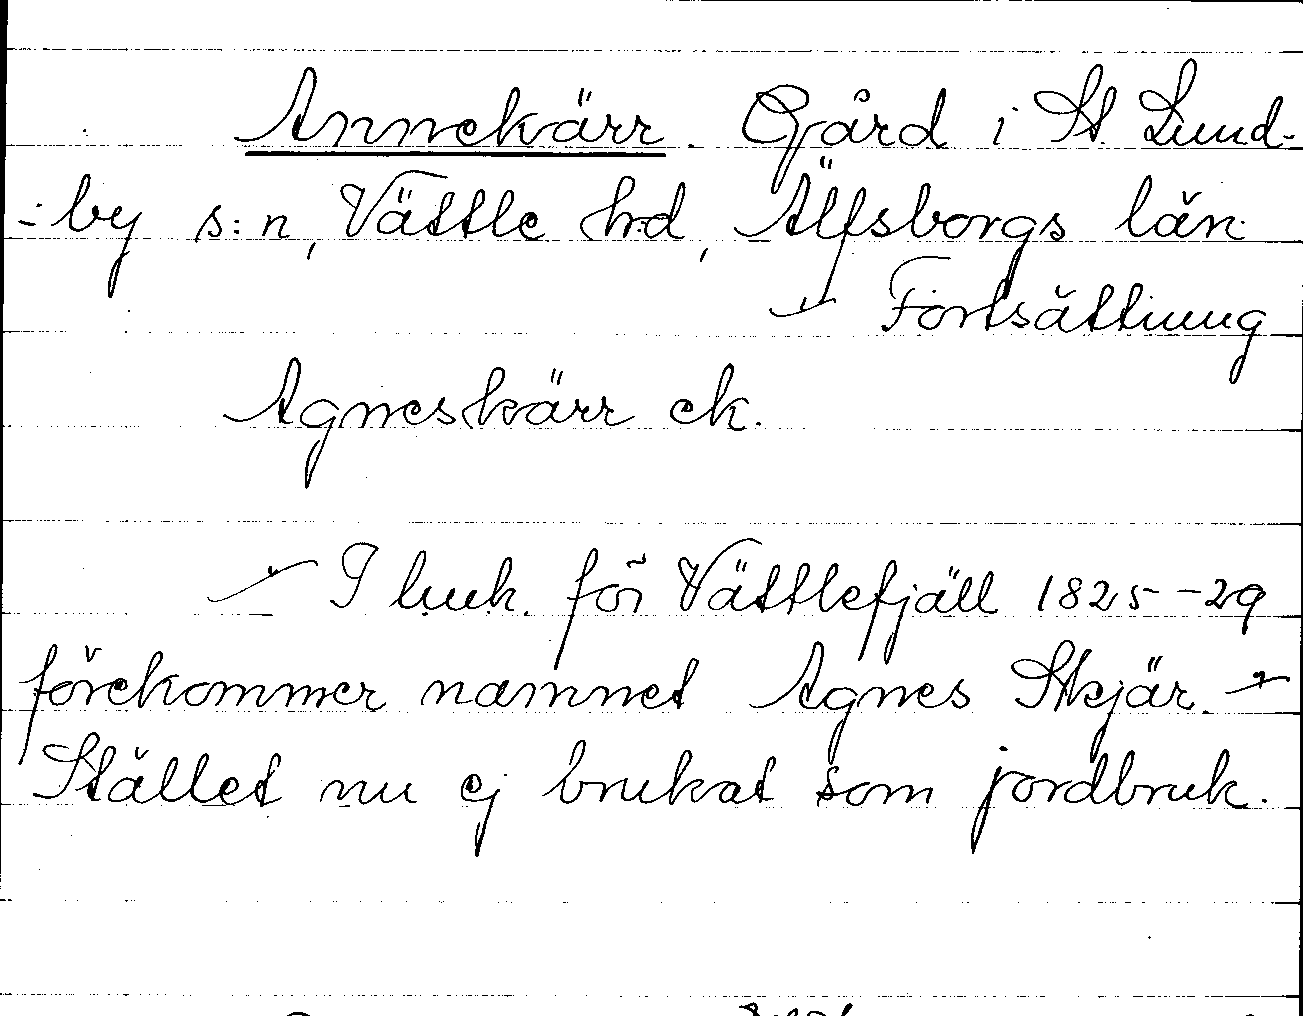 Annekärr. Gård i St. Lund-
-by s:n, Vättle hd, Älfsborgs län.
Fortsättning
Agneskärr ek.
I huk. för Vättlefjäll 1825-29
förekommer namnet Agnes Skjär.
Stället nu ej brukat som jordbruk.